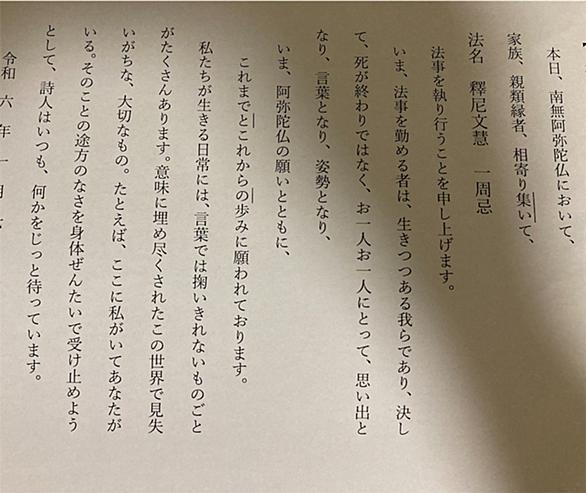 本日、南無阿弥陀仏において、
家族、親類縁者、相寄り集いて、
法名　釋尼文慧　一周忌
法事を執り行うことを申し上げます。
いま、法事を勤める者は、生きつつある我らであり、決し
て、死が終わりではなく、お一人お一人にとって、思い出と
なり、言葉となり、姿勢となり、
いま、阿弥陀仏の願いとともに、
これまでとこれからの歩みに願われております。
私たちが生きる日常には、言葉では掬いきれないものごと
がたくさんあります。意味に埋め尽くされたこの世界で見失
いがちな、大切なもの。たとえば、ここに私がいてあなたが
いる。そのことの途方のなさを身体ぜんたいで受け止めよう
として、詩人はいつも、何かをじっと待っています。
令和　六　年　一　月